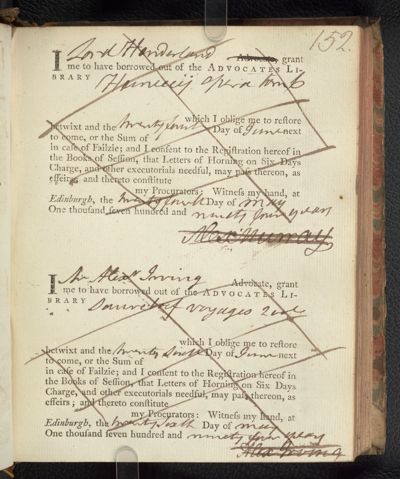 152.
I Lord Henderland Advocate, grant
me to have borrowed out of the ADVOCATES LI-
BRARY opera
which I oblige me to restore
betwixt and the twenty Day of June next
to come, or the Sum of
in case of Failzie; and I consent to the Registration hereof in
the Books of Session, that Letters of Horning on Six Days
Charge, and other executorials needful, may pass thereon, as
effeirs; and thereto constitute
my Procurators: Witness my hand, at
Edinburgh, the Day of may
One thousand seven hundred and ninety four years
Alex Murray
I Mr Alexr Irving Advocate, grant
me to have borrowed out of the ADVOCATES LI-
BRARY of voyages 2
which I oblige me to restore
betwixt and the twenty Sixth Day of June next
to come, or the Sum of
in case of Failzie; and I consent to the Registration hereof in
the Books of Session, that Letters of Horning on Six Days
Charge, and other executorials needful, may pass thereon, as
effeirs; and thereto constitute
my Procurators: Witness my hand, at
Edinburgh, the twenty Sixth Day of may
One thousand seven hundred and ninety four years
Alex Irving